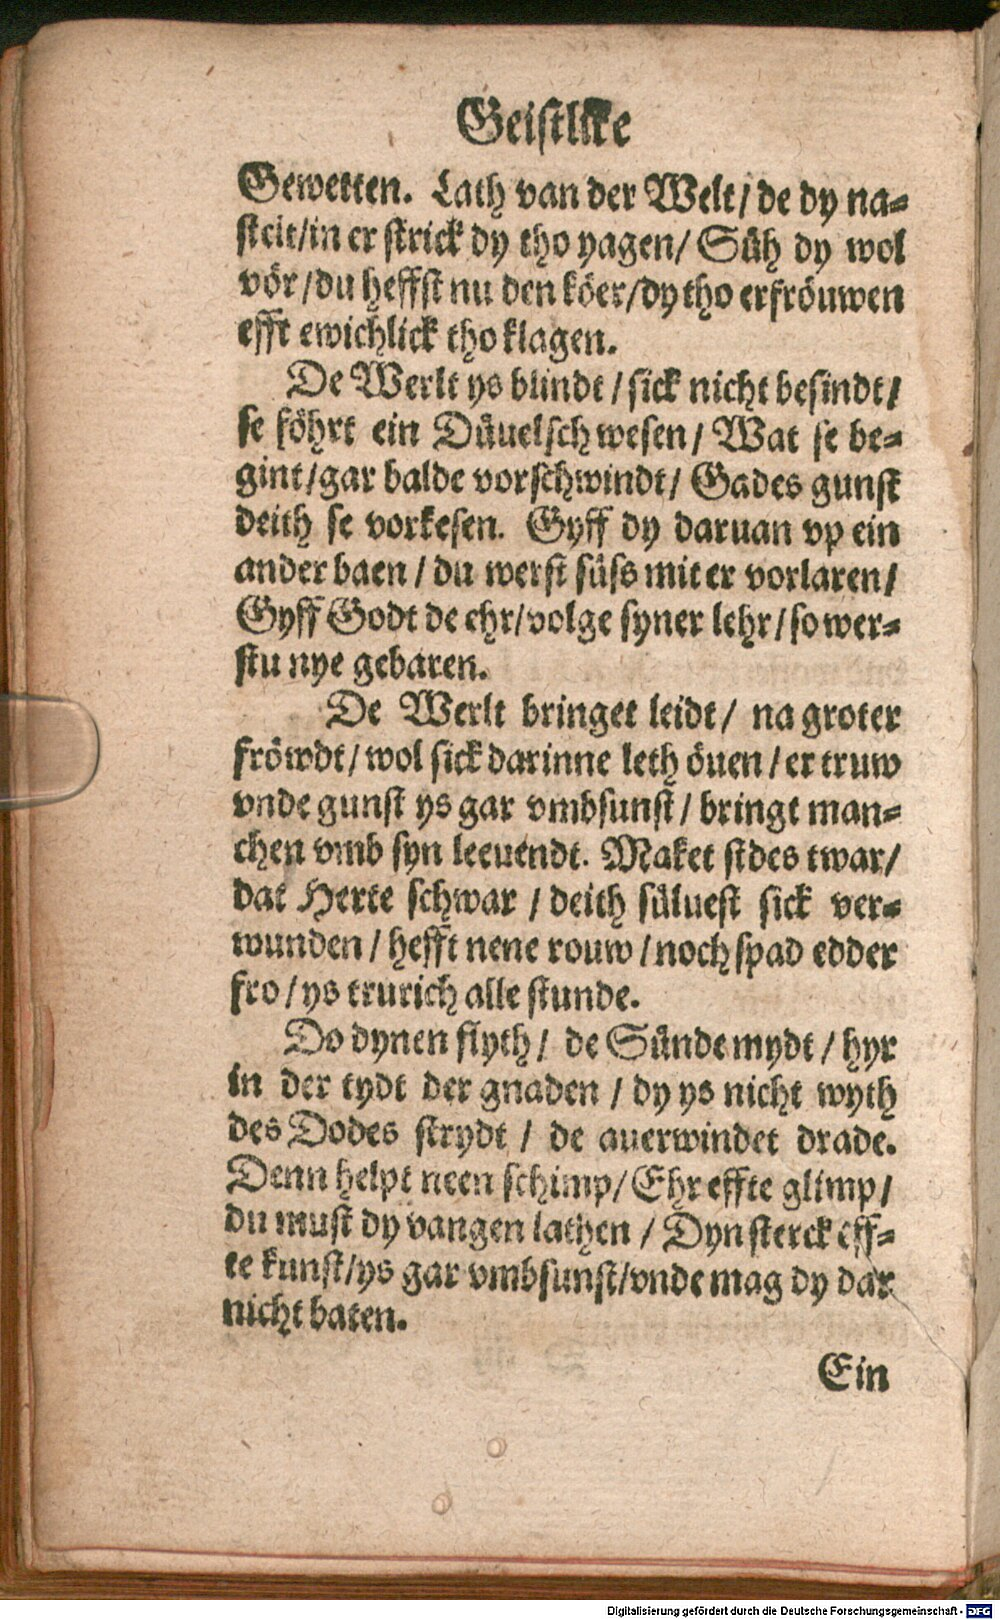 Geistlike
Gewetten. Lath van der Welt/ de dy na-
steit/in er strick dy tho yagen/ Süh dy wol
vör/du heffst nu den köer/dy tho erfröuwen
efft ewichlick tho klagen.
De Werlt ys blindt/ sick nicht besindt/
se föhrt ein Düuelsch wesen/ Wat se be-
gint/gar balde vorschwindt/ Gades gunst
deith se vorkesen. Gyff dy daruan vp ein
ander baen/ du werst süss mit er vorlaren/
Gyff Godt de ehr/volge syner lehr/so wer-
stu nye gebaren.
De Werlt bringet leidt/ na groter
fröwdt/wol sick darinne leth öuen/er truw
vnde gunst ys gar vmbsunst/ bringt man-
chen vmb syn leeuendt. Maket stdes twar/
dat Herte schwar/ deith süluest sick ver-
wunden/ hefft nene rouw/noch spad edder
fro/ys trurich alle stunde.
Do dynen flyth/ de Sünde mydt/ hyr
in der tydt der gnaden/ dy ys nicht wyth
des Dodes strydt/ de auerwindet drade.
Denn helpt neen schimp/ Ehr effte glimp/
du must dy vangen lathen/ Dyn sterck eff-
te kunst/ys gar vmbsunst/vnde mag dy dar
nicht baten.
Ein
Digitalisierung gefördert durch die Deutsche Forschungsgemeinschaft - DFG